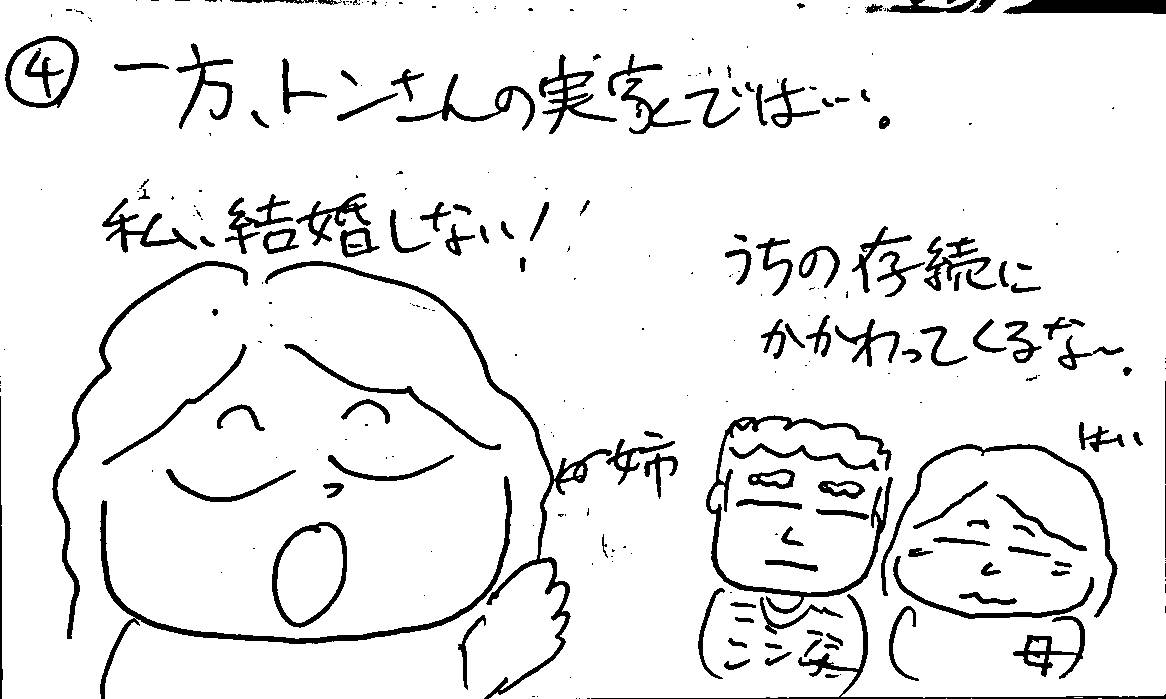 ④ 一方、トンさんの実家では…。
私、結婚しない!
うちの存続に
かかわってくるな〜。
姉
はい
父
母